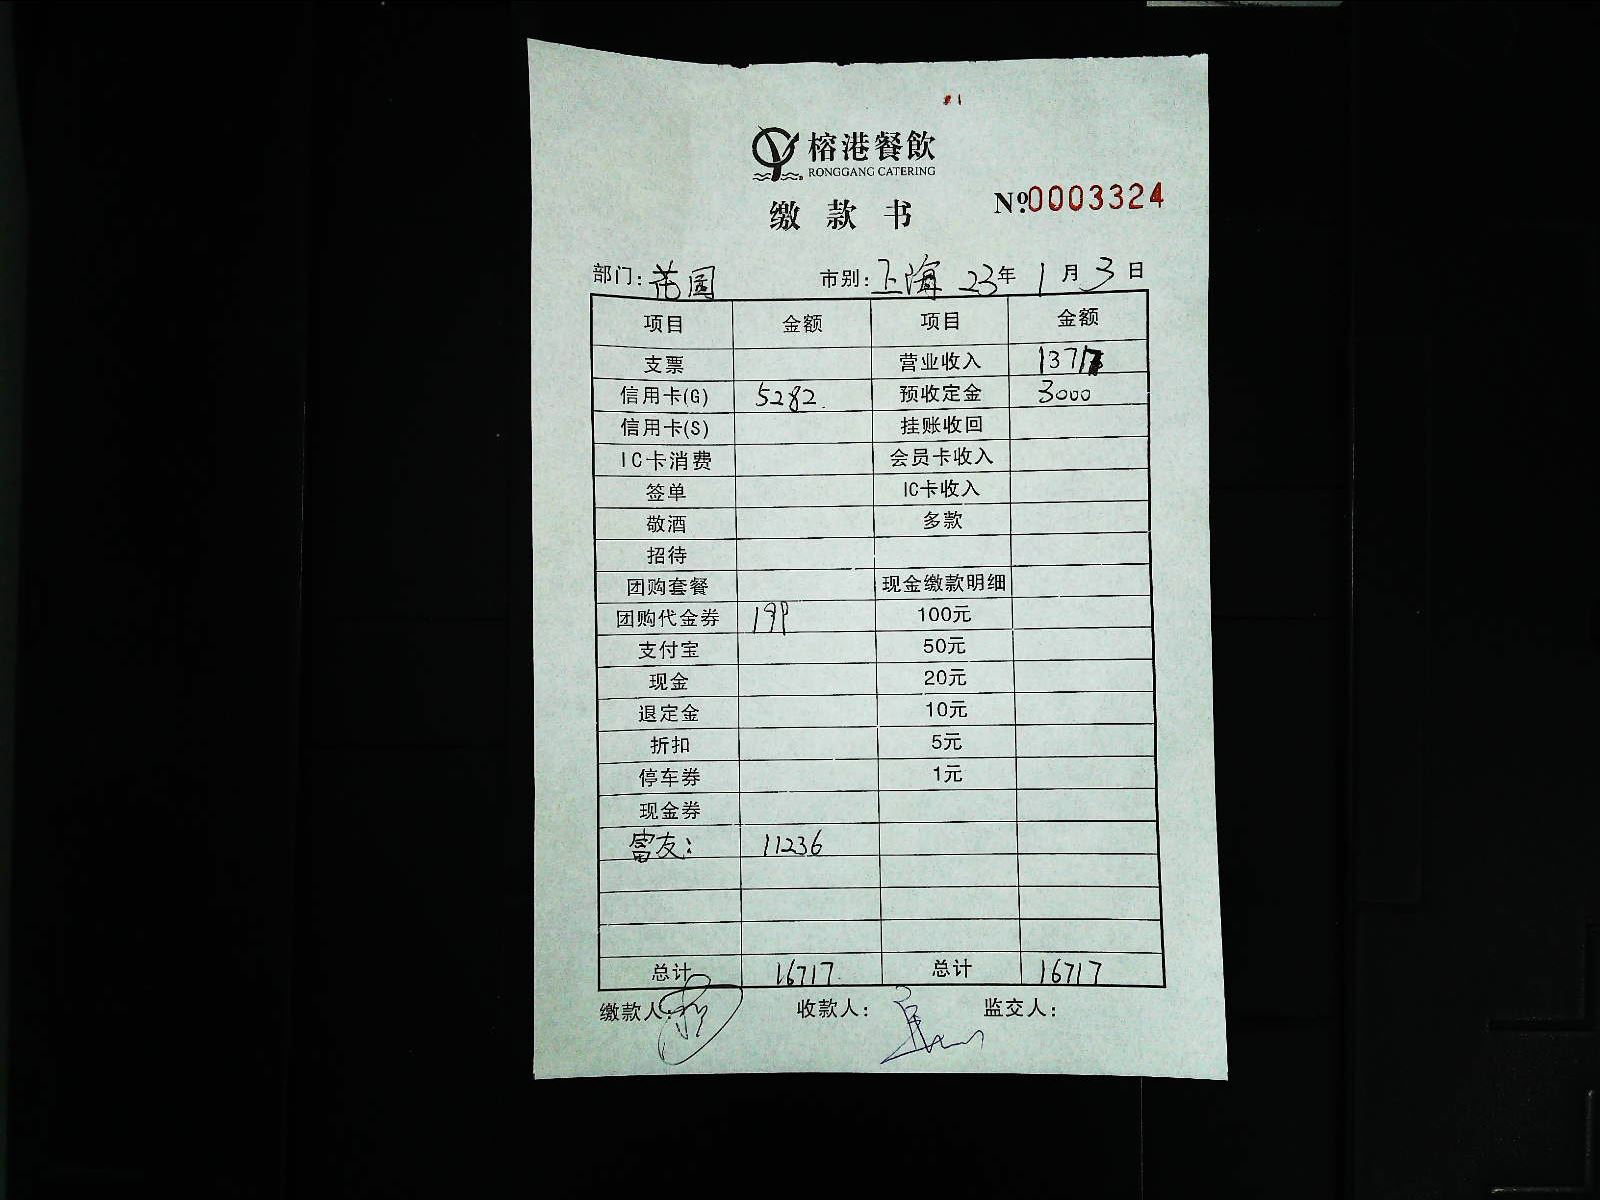 榕港餐飲
RONGGANG CATERING
缴款书 №0003324
部门: 花园 市别: 上海 23年 1月 3日
项目 金额 项目 金额
支票 营业收入 13717
信用卡(G) 5282 预收定金 3000
信用卡(S) 挂账收回
IC卡消费 会员卡收入
签单 IC卡收入
敬酒 多款
招待
团购套餐 现金缴款明细
团购代金券 199 100元
支付宝 50元
现金 20元
退定金 10元
折扣 5元
停车券 1元
现金券
富友: 11236
总计 16717 总计 16717
缴款人: 收款人: 监交人: